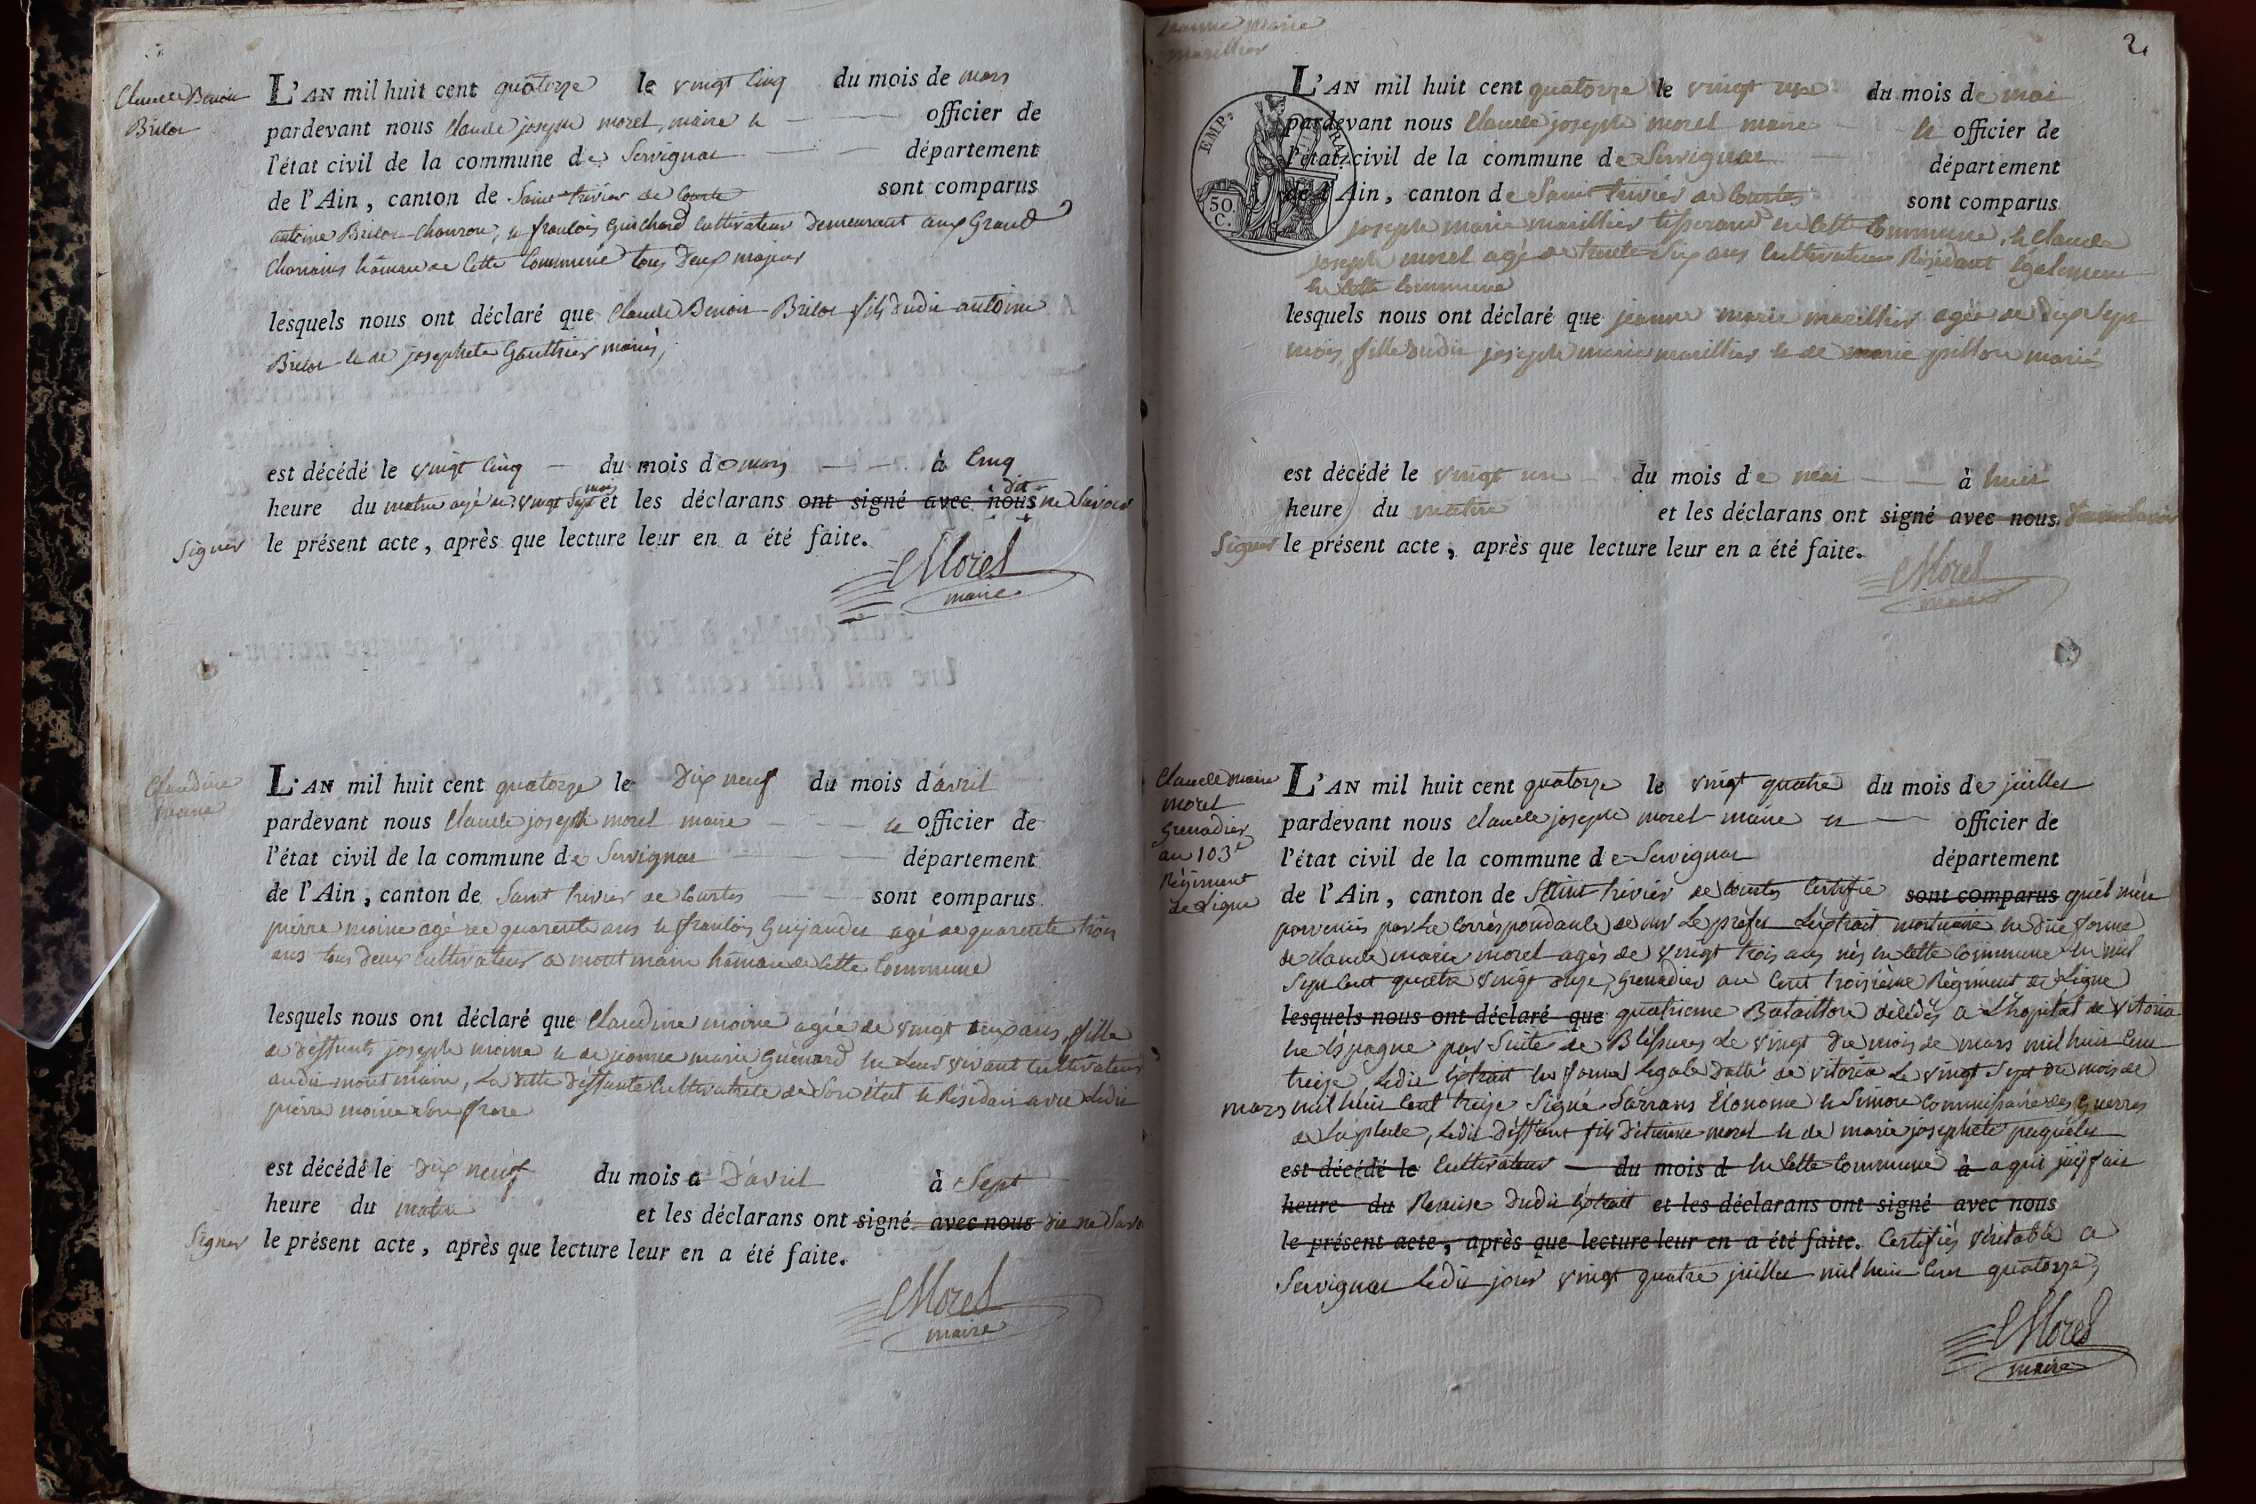 Claude Benoit
Brilot
L'AN mil huit cent quatorze le vingt cinq du mois de mars
pardevant nous Claude joseph morel, maire et officier de
l'état civil de la commune de Servignat département
de l'Ain, canton de Saint trivier de Courte sont comparus
antoine Brilot Chanron, et franĉois Guichard Cultivateur Demeurant aux Grand
Charnais hâmau de Cette Commune tous Deux majeur
lesquels nous ont déclaré que Claude Benoit Brilot fils dudit antoine
Brilot et de josephete Gauthier mariés,
est décédé le vingt cinq du mois de mars à Cinq
heure du matin agé de vingt Sept mois et les déclarans ont signé avec nous dit ne Savoir
Signer le présent acte, après que lecture leur en a été faite.
CMorel
maire
Claudine
moine
L'AN mil huit cent quatorze le Dix neuf du mois d'avril
pardevant nous Claude joseph morel maire et officier de
l'état civil de la commune de Servignat département
de l'Ain, canton de Saint trivier de Courtes sont comparus
pierre moine agé de quarente ans et franĉois Guijandet agé de quarente trois
ans tous Deux Cultivateur a mont main hâmau de Cette Commune
lesquels nous ont déclaré que Claudine moine agée de vingt deux ans, fille
de Deffunts joseph moine et de jeanne marie Guenard en Leur vivant Cultivateur
audit mont main, La Ditte Deffunte Cultivatrice de Son état et Résidait avec Ledit
pierre moine Son frere
est décédé le Dix neuf du mois D'avril à Sept
heure du matin et les déclarans ont signé avec nous dit ne Savoir
Signer le présent acte, après que lecture leur en a été faite.
CMorel
maire
2.
jeanne marie
marillier
EMP. FRAN.
50. C.
L'AN mil huit cent quatorze le vingt un du mois de mai
pardevant nous Claude joseph morel maire et officier de
l'état civil de la commune de Servignat département
de l'Ain, canton de Saint trivier de Courtes sont comparus
joseph marie marillier tisserand en Cette Commune, et Claude
joseph morel agé de trente Six ans Cultivateur Résidant Egalement
en Cette Commune
lesquels nous ont déclaré que jeanne marie marillier agée de Dix Sept
mois, fille dudit joseph marie marillier et de marie pillon mariés
est décédé le vingt un du mois de mai à huit
heure du matin et les déclarans ont signé avec nous
Signer le présent acte, après que lecture leur en a été faite.
CMorel
maire
Claude marie
morel
Grenadier
au 103e
Régiment
de Ligne
L'AN mil huit cent quatorze le vingt quatre du mois de juillet
pardevant nous Claude joseph morel maire et officier de
l'état civil de la commune de Servignat département
de l'Ain, canton de Saint trivier de Courtes Certifie sont comparus quil m'est
parvenus par La Correspondance de mr Le prefet L'extrait mortuaire en Due forme
de Claude marie morel agés de vingt trois ans nés en Cette Commune En mil
Sept Cent quatre vingt onze, Grenadier au Cent troisième Régiment de Ligne
lesquels nous ont déclaré que quatrieme Bataillon décédés a L'hopital de vitoria
En Espagne par Suite de Blessures Le vingt Du mois de mars mil huit Cent
treize, Ledit Extrait En forme Legale Datté de vitoria Le vingt Sept du mois de
mars mil huit Cent treize Signé Sarrans Econome et Simon Commissaire des Guerres
de La place, Ledit Deffunt fils D'etienne morel et de marie josephete paquelet
est décédé le Cultivateur du mois d En Cette Commune à a qui jay fait
heure du Remise Dudit Extrait et les déclarans ont signé avec nous
le présent acte, après que lecture leur en a été faite. Certifiés véritable a
Servignat Ledit jour vingt quatre juillet mil huit Cent quatorze,
CMorel
maire